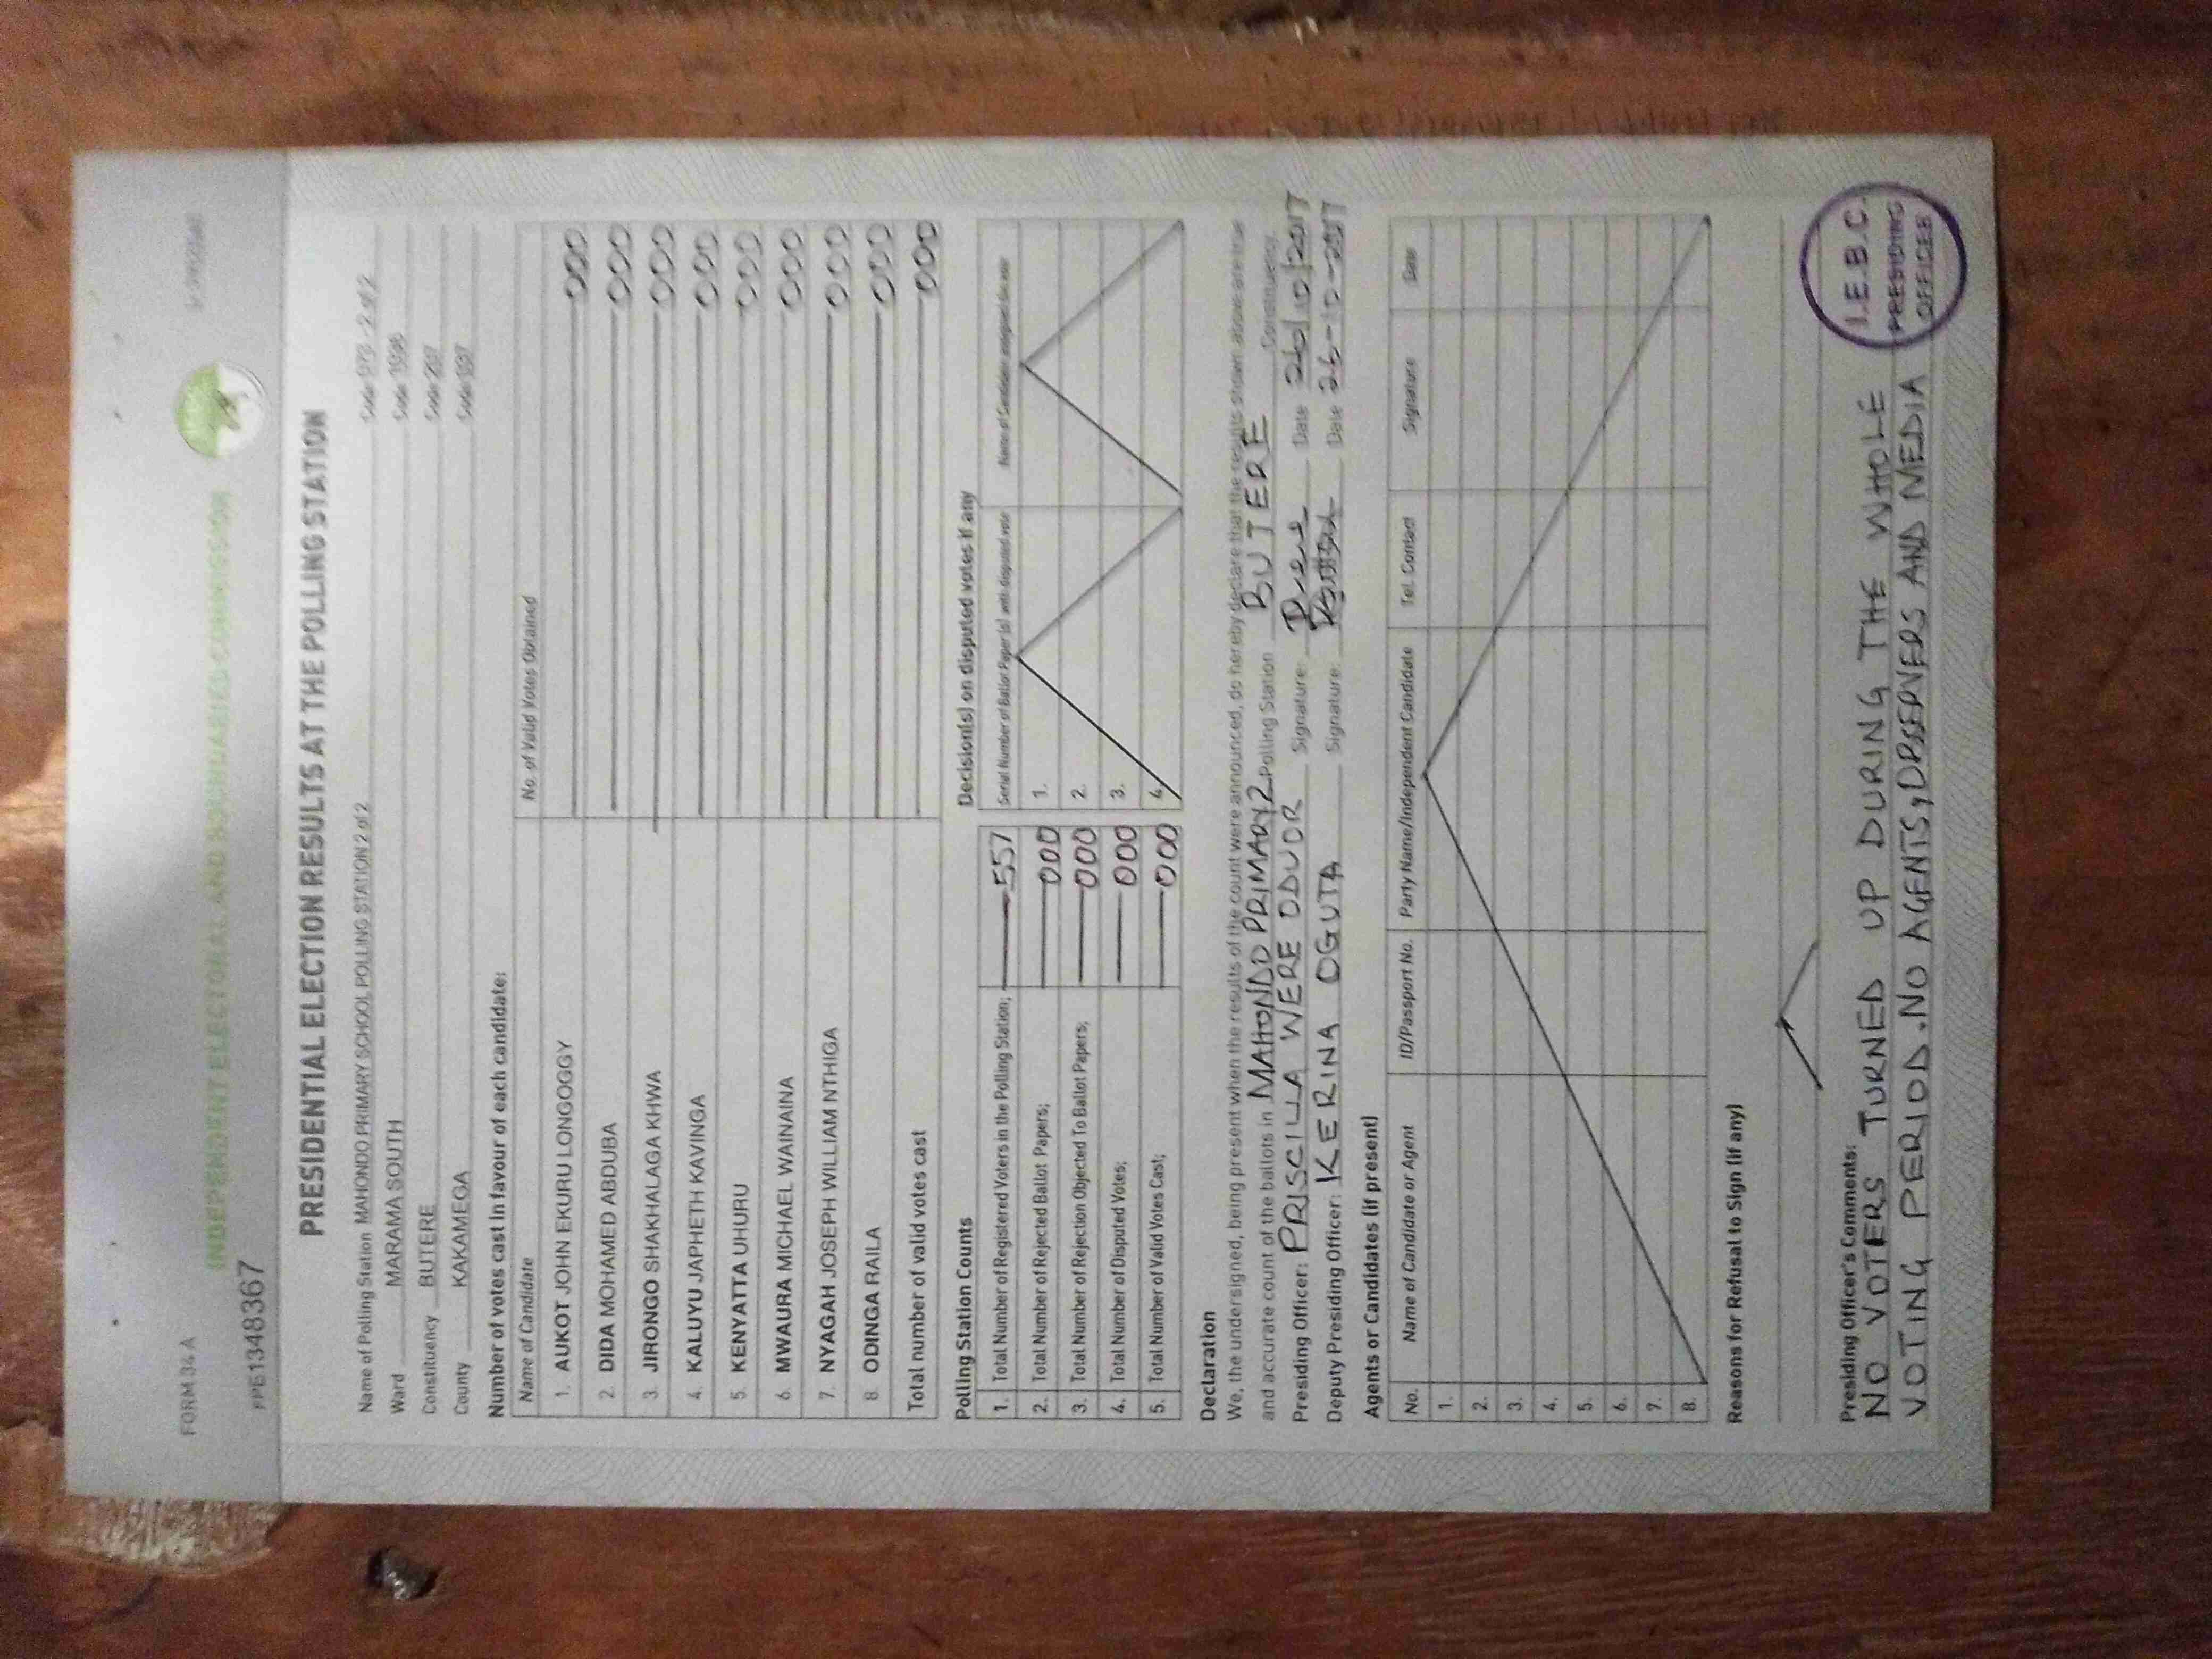 FORM 34 A
INDEPENDENT ELECTORAL AND BOUNDARIES COMMISSION
PPE1348367
PRESIDENTIAL ELECTION RESULTS AT THE POLLING STATION
Name of Polling Station MAHONDO PRIMARY SCHOOL POLLING STATION 2 of 2 Code 073 - 2 of 2
Ward MARAMA SOUTH Code
Constituency BUTERE Code 207
County KAKAMEGA Code 037
Number of votes cast in favour of each candidate:
Name of Candidate No. of Valid Votes Obtained
1. AUKOT JOHN EKURU LONGOGGY 000
2. DIDA MOHAMED ABDUBA 000
3. JIRONGO SHAKHALAGA KHWA 000
4. KALUYU JAPHETH KAVINGA 000
5. KENYATTA UHURU 000
6. MWAURA MICHAEL WAINAINA 000
7. NYAGAH JOSEPH WILLIAM NTHIGA 000
8. ODINGA RAILA 000
Total number of valid votes cast 000
Polling Station Counts
1. Total Number of Registered Voters in the Polling Station; 557
2. Total Number of Rejected Ballot Papers; 000
3. Total Number of Rejection Objected To Ballot Papers; 000
4. Total Number of Disputed Votes; 000
5. Total Number of Valid Votes Cast; 000
Decision(s) on disputed votes if any
Serial Number of Ballot Paper (s) with disputed vote Name of Candidate assigned the vote
1.
2.
3.
4.
Declaration
We, the undersigned, being present when the results of the count were announced, do hereby declare that the results shown above are true
and accurate count of the ballots in MAHONDO PRIMARY 2 Polling Station BUTERE Constituency.
Presiding Officer: PRISCILLA WERE ODUOR Signature: Date 26/10/2017
Deputy Presiding Officer: KERINA OGUTA Signature: Date 26-10-2017
Agents or Candidates (if present)
No. Name of Candidate or Agent ID/Passport No. Party Name/Independent Candidate Tel. Contact Signature Date
1.
2.
3.
4.
5.
6.
7.
8.
Reasons for Refusal to Sign (if any)
Presiding Officer's Comments:
NO VOTERS TURNED UP DURING THE WHOLE
VOTING PERIOD. NO AGENTS, OBSERVERS AND MEDIA
I.E.B.C.
PRESIDING
OFFICER